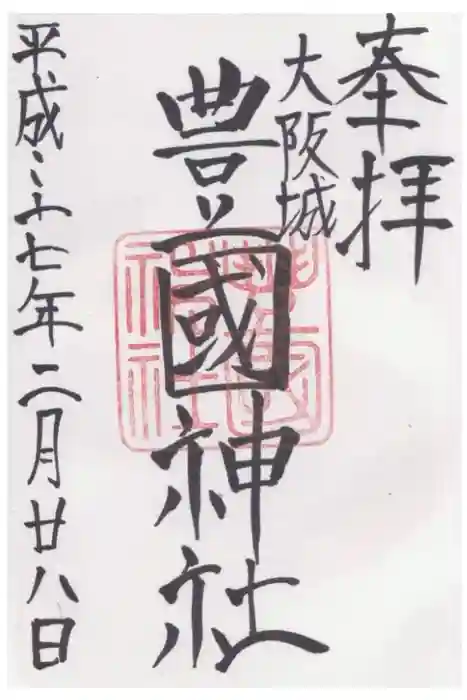 奉拝
大阪城
豊國神社
平成二十七年二月廿八日